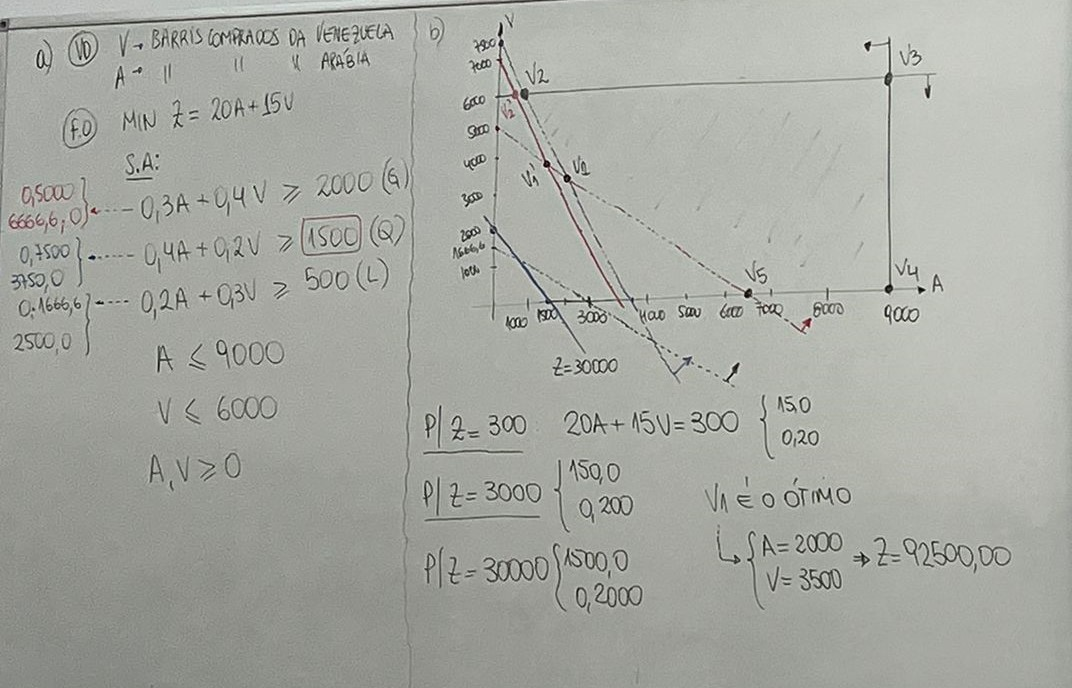 a) (VD) V → BARRIS COMPRADOS DA VENEZUELA
A → " " " ARÁBIA
(F.O) MIN Z = 20A + 15V
S.A:
0,5000
6666,6; 0 } ←---- 0,3A + 0,4V ≥ 2000 (G)
0,7500
3750,0 } ←---- 0,4A + 0,2V ≥ 1500 (Q)
0.1666,6
2500,0 } ←---- 0,2A + 0,3V ≥ 500 (L)
A ≤ 9000
V ≤ 6000
A, V ≥ 0
b)
V
7500
7000
6000
5000
4000
3000
2000
1666,6
1000
V2
V2'
V3
V1'
V1
V5
V4
A
1000 1500 3000 4000 5000 6000 7000 8000 9000
Z=30000
P/ Z = 300 : 20A + 15V = 300 { 15,0
0,20
P/ Z = 3000 { 150,0
0,200
P/ Z = 30000 { 1500,0
0,2000
V1 É O ÓTIMO
↳ { A = 2000
V = 3500 ⇒ Z = 92500,00